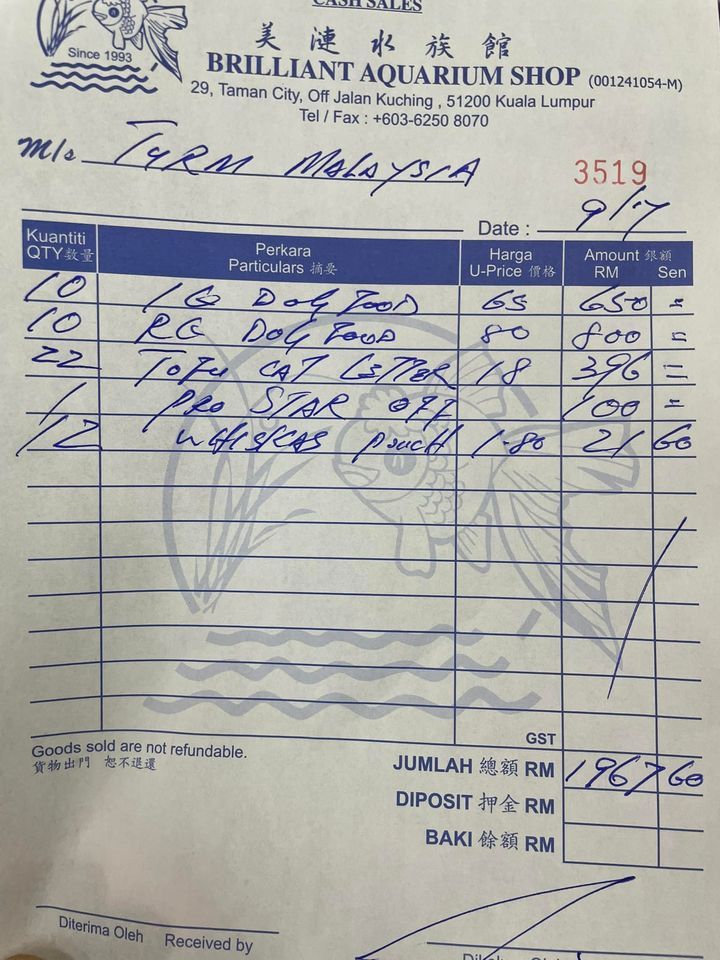 CASH SALES
Since 1993
美漣水族館
BRILLIANT AQUARIUM SHOP (001241054-M)
29, Taman City, Off Jalan Kuching , 51200 Kuala Lumpur
Tel / Fax : +603-6250 8070
M/s MALAYSIA
3519
Date : 9/7
Kuantiti QTY 數量 Perkara Particulars 摘要 Harga U-Price 價格 Amount 銀額 RM Sen
10 IG DOG FOOD 65 650 =
10 RG DOG FOOD 80 800 =
22 TOFU CAT LITTER 18 396 =
1 PRO STAR OFF 100 =
12 WHISKAS POUCH 1.80 21 60
GST
Goods sold are not refundable.
貨物出門 恕不退還
JUMLAH 總額 RM 1967 60
DIPOSIT 押金 RM
BAKI 餘額 RM
Diterima Oleh Received by